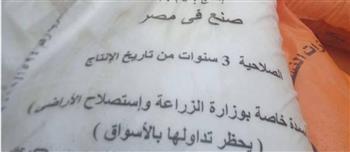 صنع فى مصر
الصلاحية 3 سنوات من تاريخ الإنتاج
خاصة بوزارة الزراعة وإستصلاح الأراضى )
( يحظر تداولها بالأسواق )